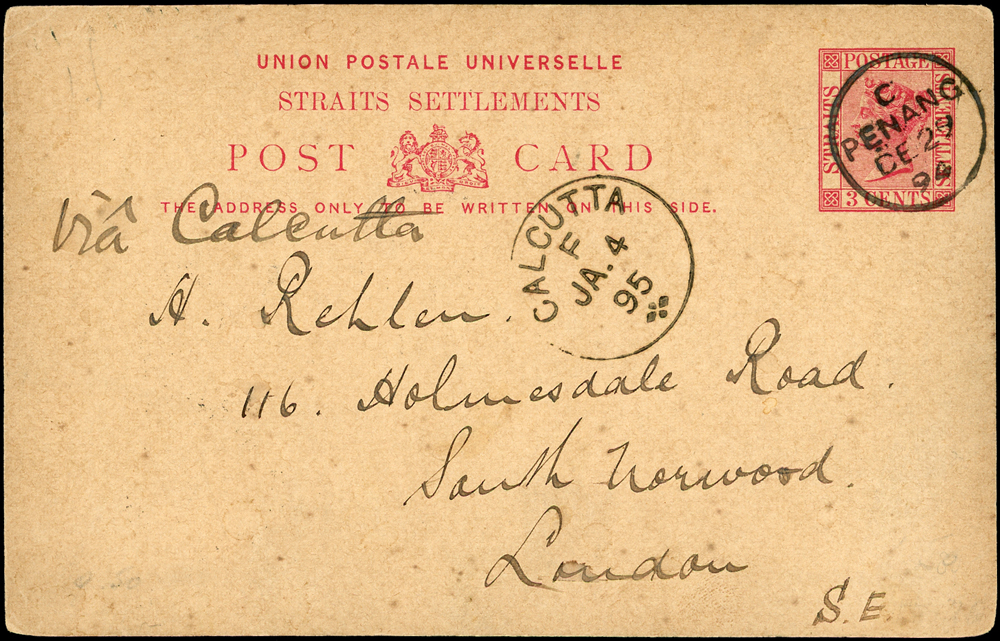 UNION POSTALE UNIVERSELLE
STRAITS SETTLEMENTS
POST CARD
THE ADDRESS ONLY TO BE WRITTEN ON THIS SIDE.
POSTAGE
STRAITS
SETTLEMENTS
3 CENTS
C
PENANG
DE 29
94
CALCUTTA
F
JA. 4
95
Viâ Calcutta
H. Rehlen.
116. Holmesdale Road.
South Norwood.
London
S.E.